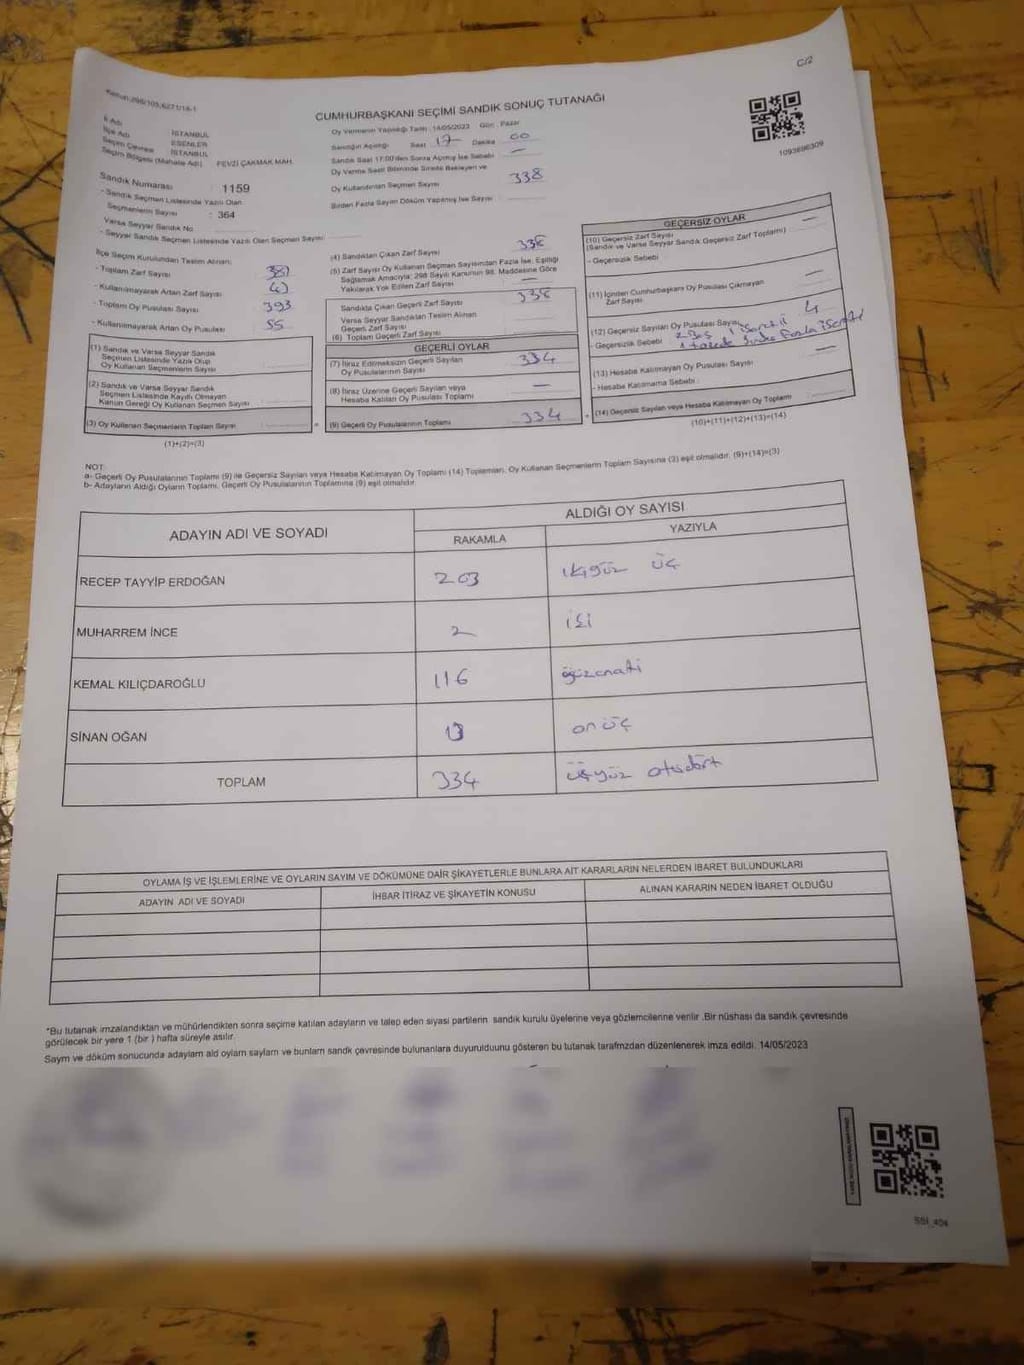 C/2
Kanun:298/105;6271/14-1
CUMHURBAŞKANI SEÇİMİ SANDIK SONUÇ TUTANAĞI
1093696309
İl Adı
İSTANBUL
İlçe Adı
ESENLER
Seçim Çevresi
İSTANBUL
Seçim Bölgesi (Mahalle Adı)
FEVZİ ÇAKMAK MAH.
Oy Vermenin Yapıldığı Tarih : 14/05/2023 Gün : Pazar
Sandığın Açıldığı Saat 17 Dakika 00
Sandık Saat 17:00'den Sonra Açılmış İse Sebebi —
Oy Verme Saati Bitiminde Sırada Bekleyen ve
Oy Kullandırılan Seçmen Sayısı 338
Birden Fazla Sayım Döküm Yapılmış İse Sayısı :
Sandık Numarası : 1159
- Sandık Seçmen Listesinde Yazılı Olan
Seçmenlerin Sayısı : 364
Varsa Seyyar Sandık No
- Seyyar Sandık Seçmen Listesinde Yazılı Olan Seçmen Sayısı:
İlçe Seçim Kurulundan Teslim Alınan:
- Toplam Zarf Sayısı 381
- Kullanılmayarak Artan Zarf Sayısı 43
- Toplam Oy Pusulası Sayısı 393
- Kullanılmayarak Artan Oy Pusulası 55
(1) Sandık ve Varsa Seyyar Sandık
Seçmen Listesinde Yazılı Olup
Oy Kullanan Seçmen Sayısı
(2) Sandık ve Varsa Seyyar Sandık
Seçmen Listesinde Kayıtlı Olmayan
Kanun Gereği Oy Kullanan Seçmen Sayısı
(3) Oy Kullanan Seçmenlerin Toplam Sayısı
(1)+(2)=(3)
(4) Sandıktan Çıkan Zarf Sayısı 338
(5) Zarf Sayısı Oy Kullanan Seçmen Sayısından Fazla İse, Eşitliği
Sağlamak Amacıyla; 298 Sayılı Kanunun 98. Maddesine Göre
Yakılarak Yok Edilen Zarf Sayısı —
Sandıkta Çıkan Geçerli Zarf Sayısı 338
Varsa Seyyar Sandıktan Teslim Alınan
Geçerli Zarf Sayısı
(6) Toplam Geçerli Zarf Sayısı
GEÇERLİ OYLAR
(7) İtiraz Edilmeksizin Geçerli Sayılan
Oy Pusulalarının Sayısı 334
(8) İtiraz Üzerine Geçerli Sayılan veya
Hesaba Katılan Oy Pusulası Toplamı —
= (9) Geçerli Oy Pusulalarının Toplamı 334
GEÇERSİZ OYLAR
(10) Geçersiz Zarf Sayısı —
(Sandık ve Varsa Seyyar Sandık Geçersiz Zarf Toplamı)
- Geçersizlik Sebebi
(11) İçinden Cumhurbaşkanı Oy Pusulası Çıkmayan —
Zarf Sayısı
(12) Geçersiz Sayılan Oy Pusulası Sayısı 4
- Geçersizlik Sebebi 2 Boş 1 işaretli
1 birden fazla işaretli
(13) Hesaba Katılmayan Oy Pusulası Sayısı —
- Hesaba Katılmama Sebebi :
+ (14) Geçersiz Sayılan veya Hesaba Katılmayan Oy Toplamı
(10)+(11)+(12)+(13)=(14)
NOT:
a- Geçerli Oy Pusulalarının Toplamı (9) ile Geçersiz Sayılan veya Hesaba Katılmayan Oy Toplamı (14) Toplamları, Oy Kullanan Seçmenlerin Toplam Sayısına (3) eşit olmalıdır. (9)+(14)=(3)
b- Adayların Aldığı Oyların Toplamı, Geçerli Oy Pusulalarının Toplamına (9) eşit olmalıdır.
ADAYIN ADI VE SOYADI
ALDIĞI OY SAYISI
RAKAMLA
YAZIYLA
RECEP TAYYİP ERDOĞAN 203 ikiyüz üç
MUHARREM İNCE 2 iki
KEMAL KILIÇDAROĞLU 116 yüzonaltı
SİNAN OĞAN 13 on üç
TOPLAM 334 üçyüz otuzdört
OYLAMA İŞ VE İŞLEMLERİNE VE OYLARIN SAYIM VE DÖKÜMÜNE DAİR ŞİKAYETLERLE BUNLARA AİT KARARLARIN NELERDEN İBARET BULUNDUKLARI
ADAYIN ADI VE SOYADI
İHBAR İTİRAZ VE ŞİKAYETİN KONUSU
ALINAN KARARIN NEDEN İBARET OLDUĞU
*Bu tutanak imzalandıktan ve mühürlendikten sonra seçime katılan adayların ve talep eden siyasi partilerin sandık kurulu üyelerine veya gözlemcilerine verilir .Bir nüshası da sandık çevresinde
görülecek bir yere 1 (bir ) hafta süreyle asılır.
Saym ve döküm sonucunda adaylarn ald oylarn saylarn ve bunlarn sandk çevresinde bulunanlara duyurulduunu gösteren bu tutanak tarafmzdan düzenlenerek imza edildi. 14/05/2023